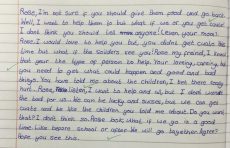 Rosie, I'm not sure if you should give them food and go back.
Well, I want to help them to but what if we or you get caught
I don't think you should tell anyone! (even your mom).
Rose, I would love to help you, but you didn't get caught this
time but what if the soldiers see you? Rose my friend, I know
that your the type of person to help. Your loving, caring, but
you need to get what could happen and good and bad
things. You have told me about the children, I bet there really
hurt. Rose, listen, I want to help and all, but I don't want
the bad for us. We can be lucky and success, but we can get
caught and be like the children you told me about. Do you want
that? I don't think so. Rose look what if we go in a good
time like before school or after. We will go together. Agree?
Hope you see this.